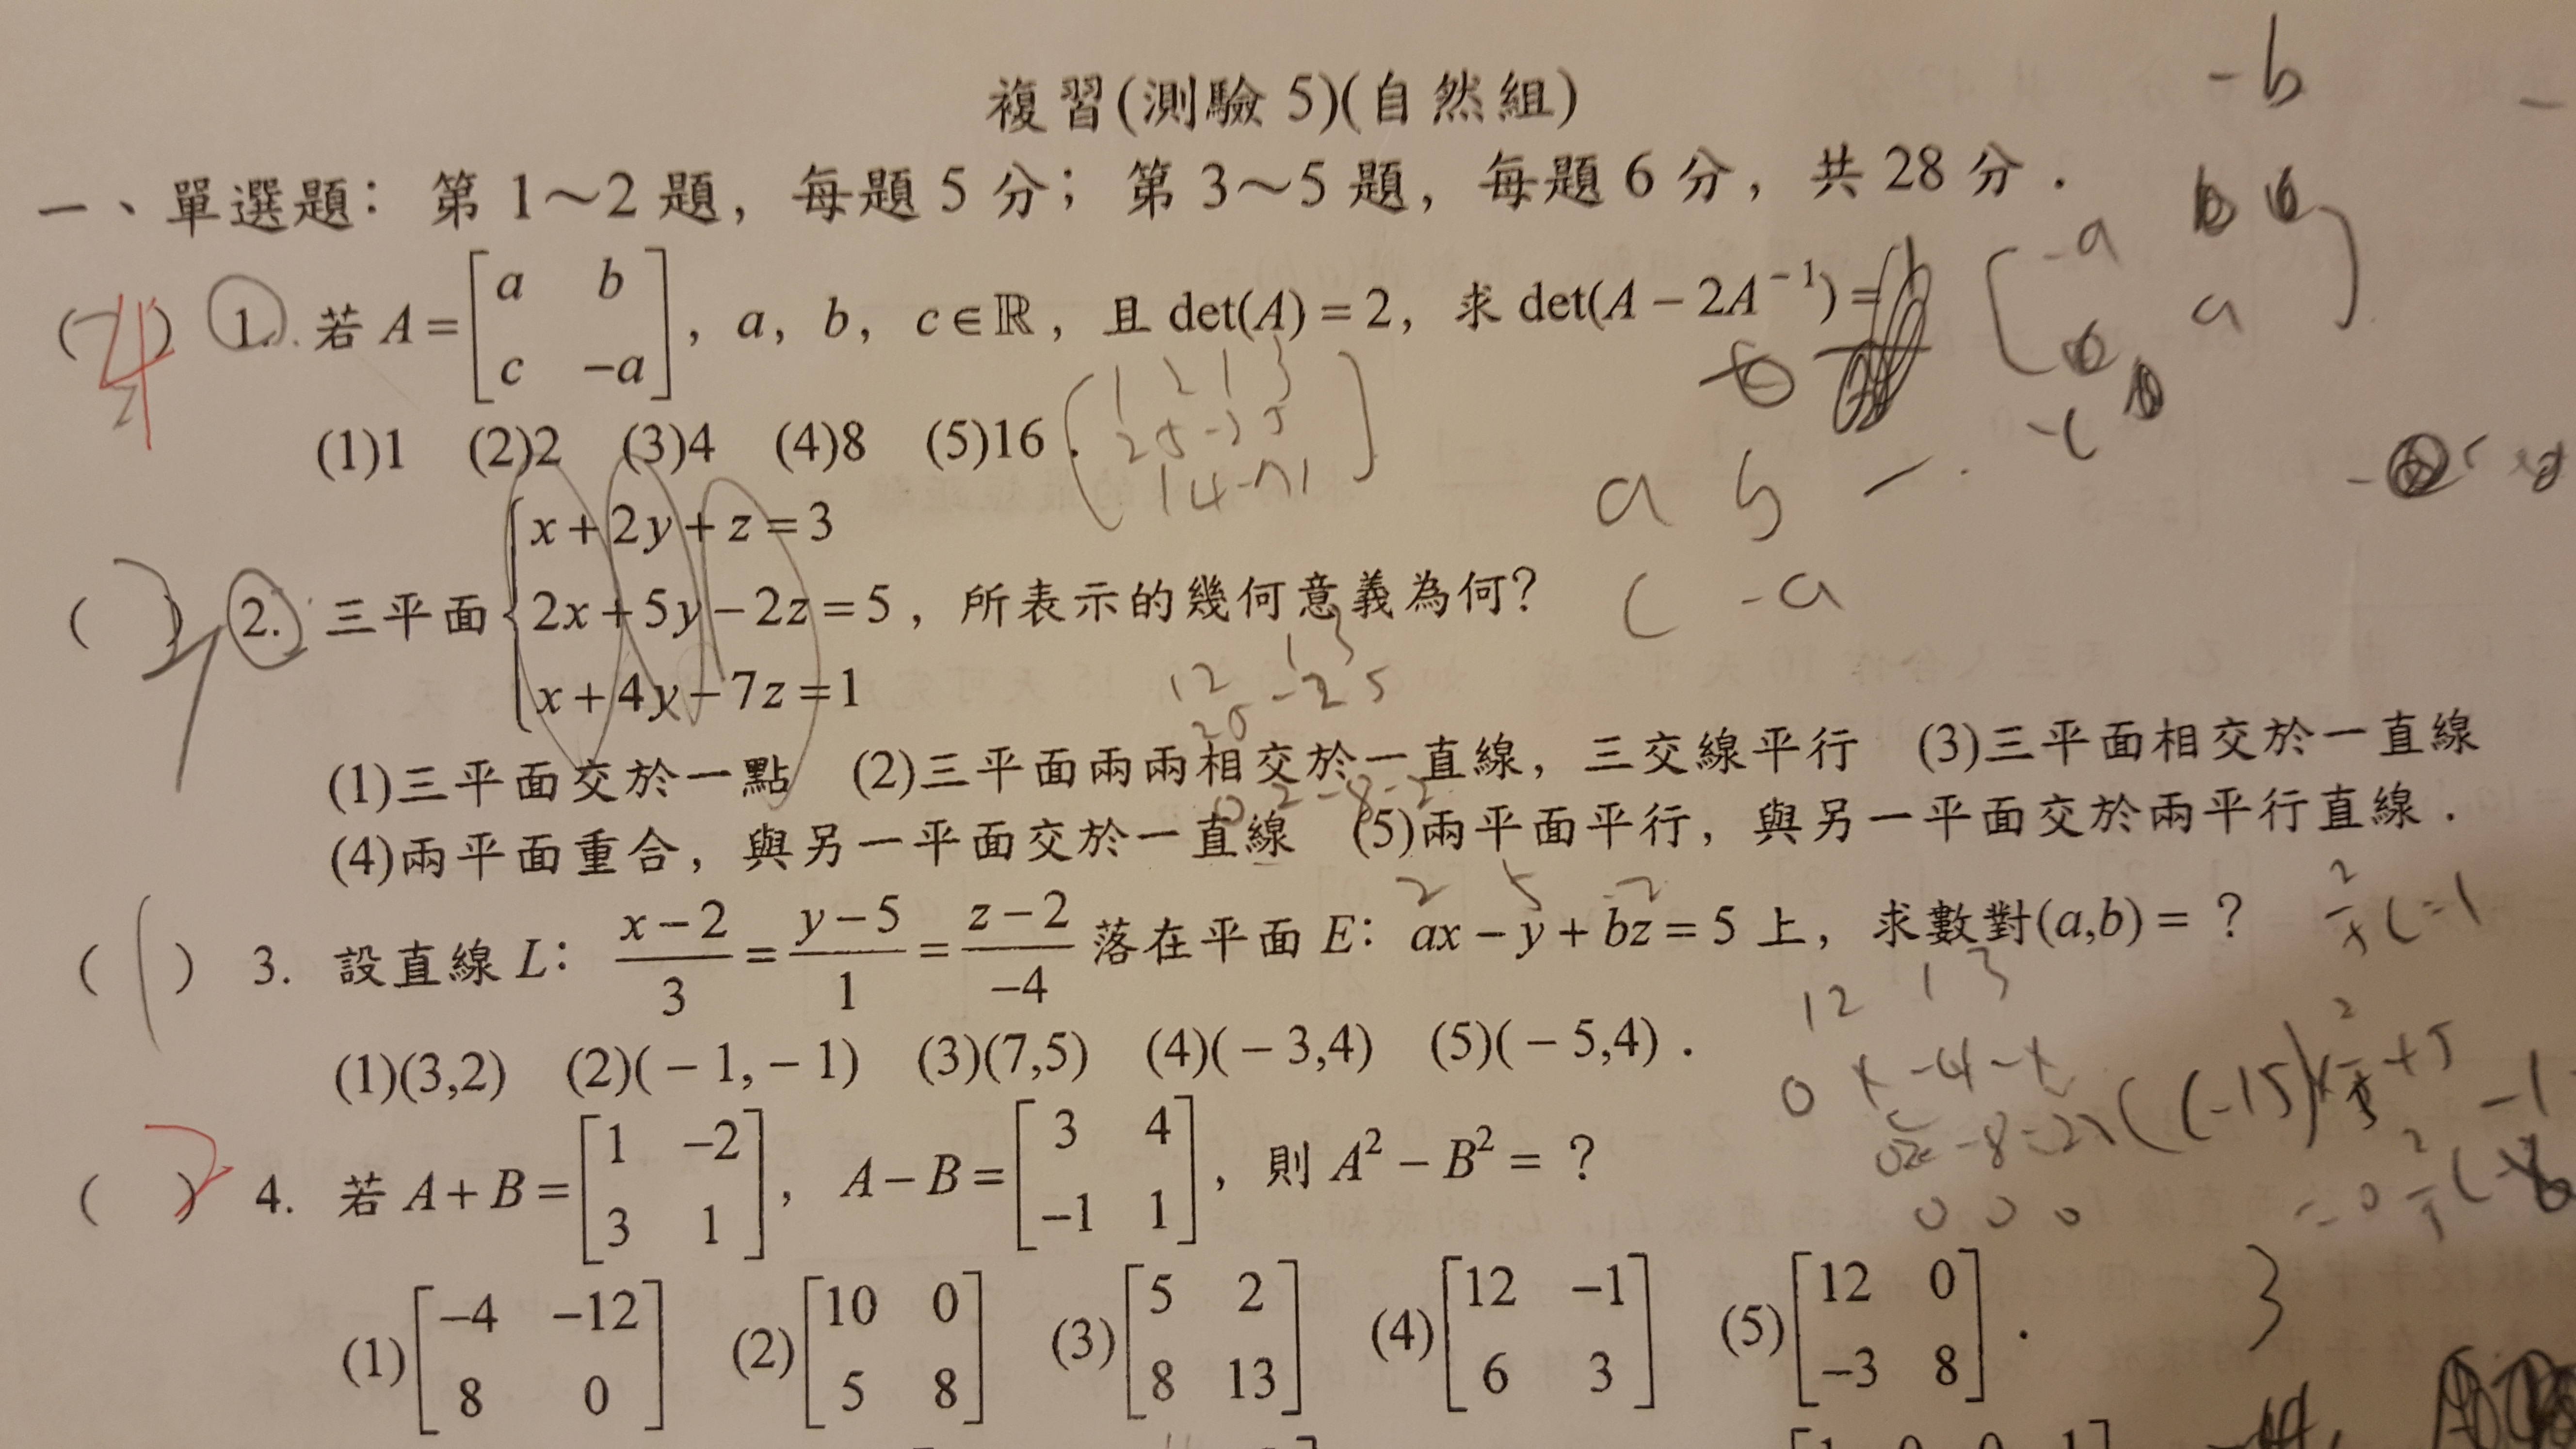 複習(測驗 5)(自然組)
一、單選題：第 1～2 題，每題 5 分；第 3～5 題，每題 6 分，共 28 分．
( 4 ) 1. 若 A = [a b; c −a]，a，b，c∈ℝ，且 det(A) = 2，求 det(A − 2A⁻¹) =
(1)1 (2)2 (3)4 (4)8 (5)16．
( ) 2. 三平面 { x + 2y + z = 3
2x + 5y − 2z = 5，所表示的幾何意義為何？
x + 4y − 7z = 1
(1)三平面交於一點 (2)三平面兩兩相交於一直線，三交線平行 (3)三平面相交於一直線
(4)兩平面重合，與另一平面交於一直線 (5)兩平面平行，與另一平面交於兩平行直線．
( 1 ) 3. 設直線 L：(x − 2)/3 = (y − 5)/1 = (z − 2)/−4 落在平面 E：ax − y + bz = 5 上，求數對(a,b) = ？
(1)(3,2) (2)( − 1, − 1) (3)(7,5) (4)( − 3,4) (5)( − 5,4)．
( 2 ) 4. 若 A + B = [1 −2; 3 1]，A − B = [3 4; −1 1]，則 A² − B² = ？
(1)[−4 −12; 8 0] (2)[10 0; 5 8] (3)[5 2; 8 13] (4)[12 −1; 6 3] (5)[12 0; −3 8]．
-b
-a
a
-c
a b
c -a
1 2 1 3
2 5 -2 5
1 4 -7 1
1 2 1 3
2 5 -2 5
0 2 -8 -2
2 5 -2
1 2 1 3
0 0 0
3